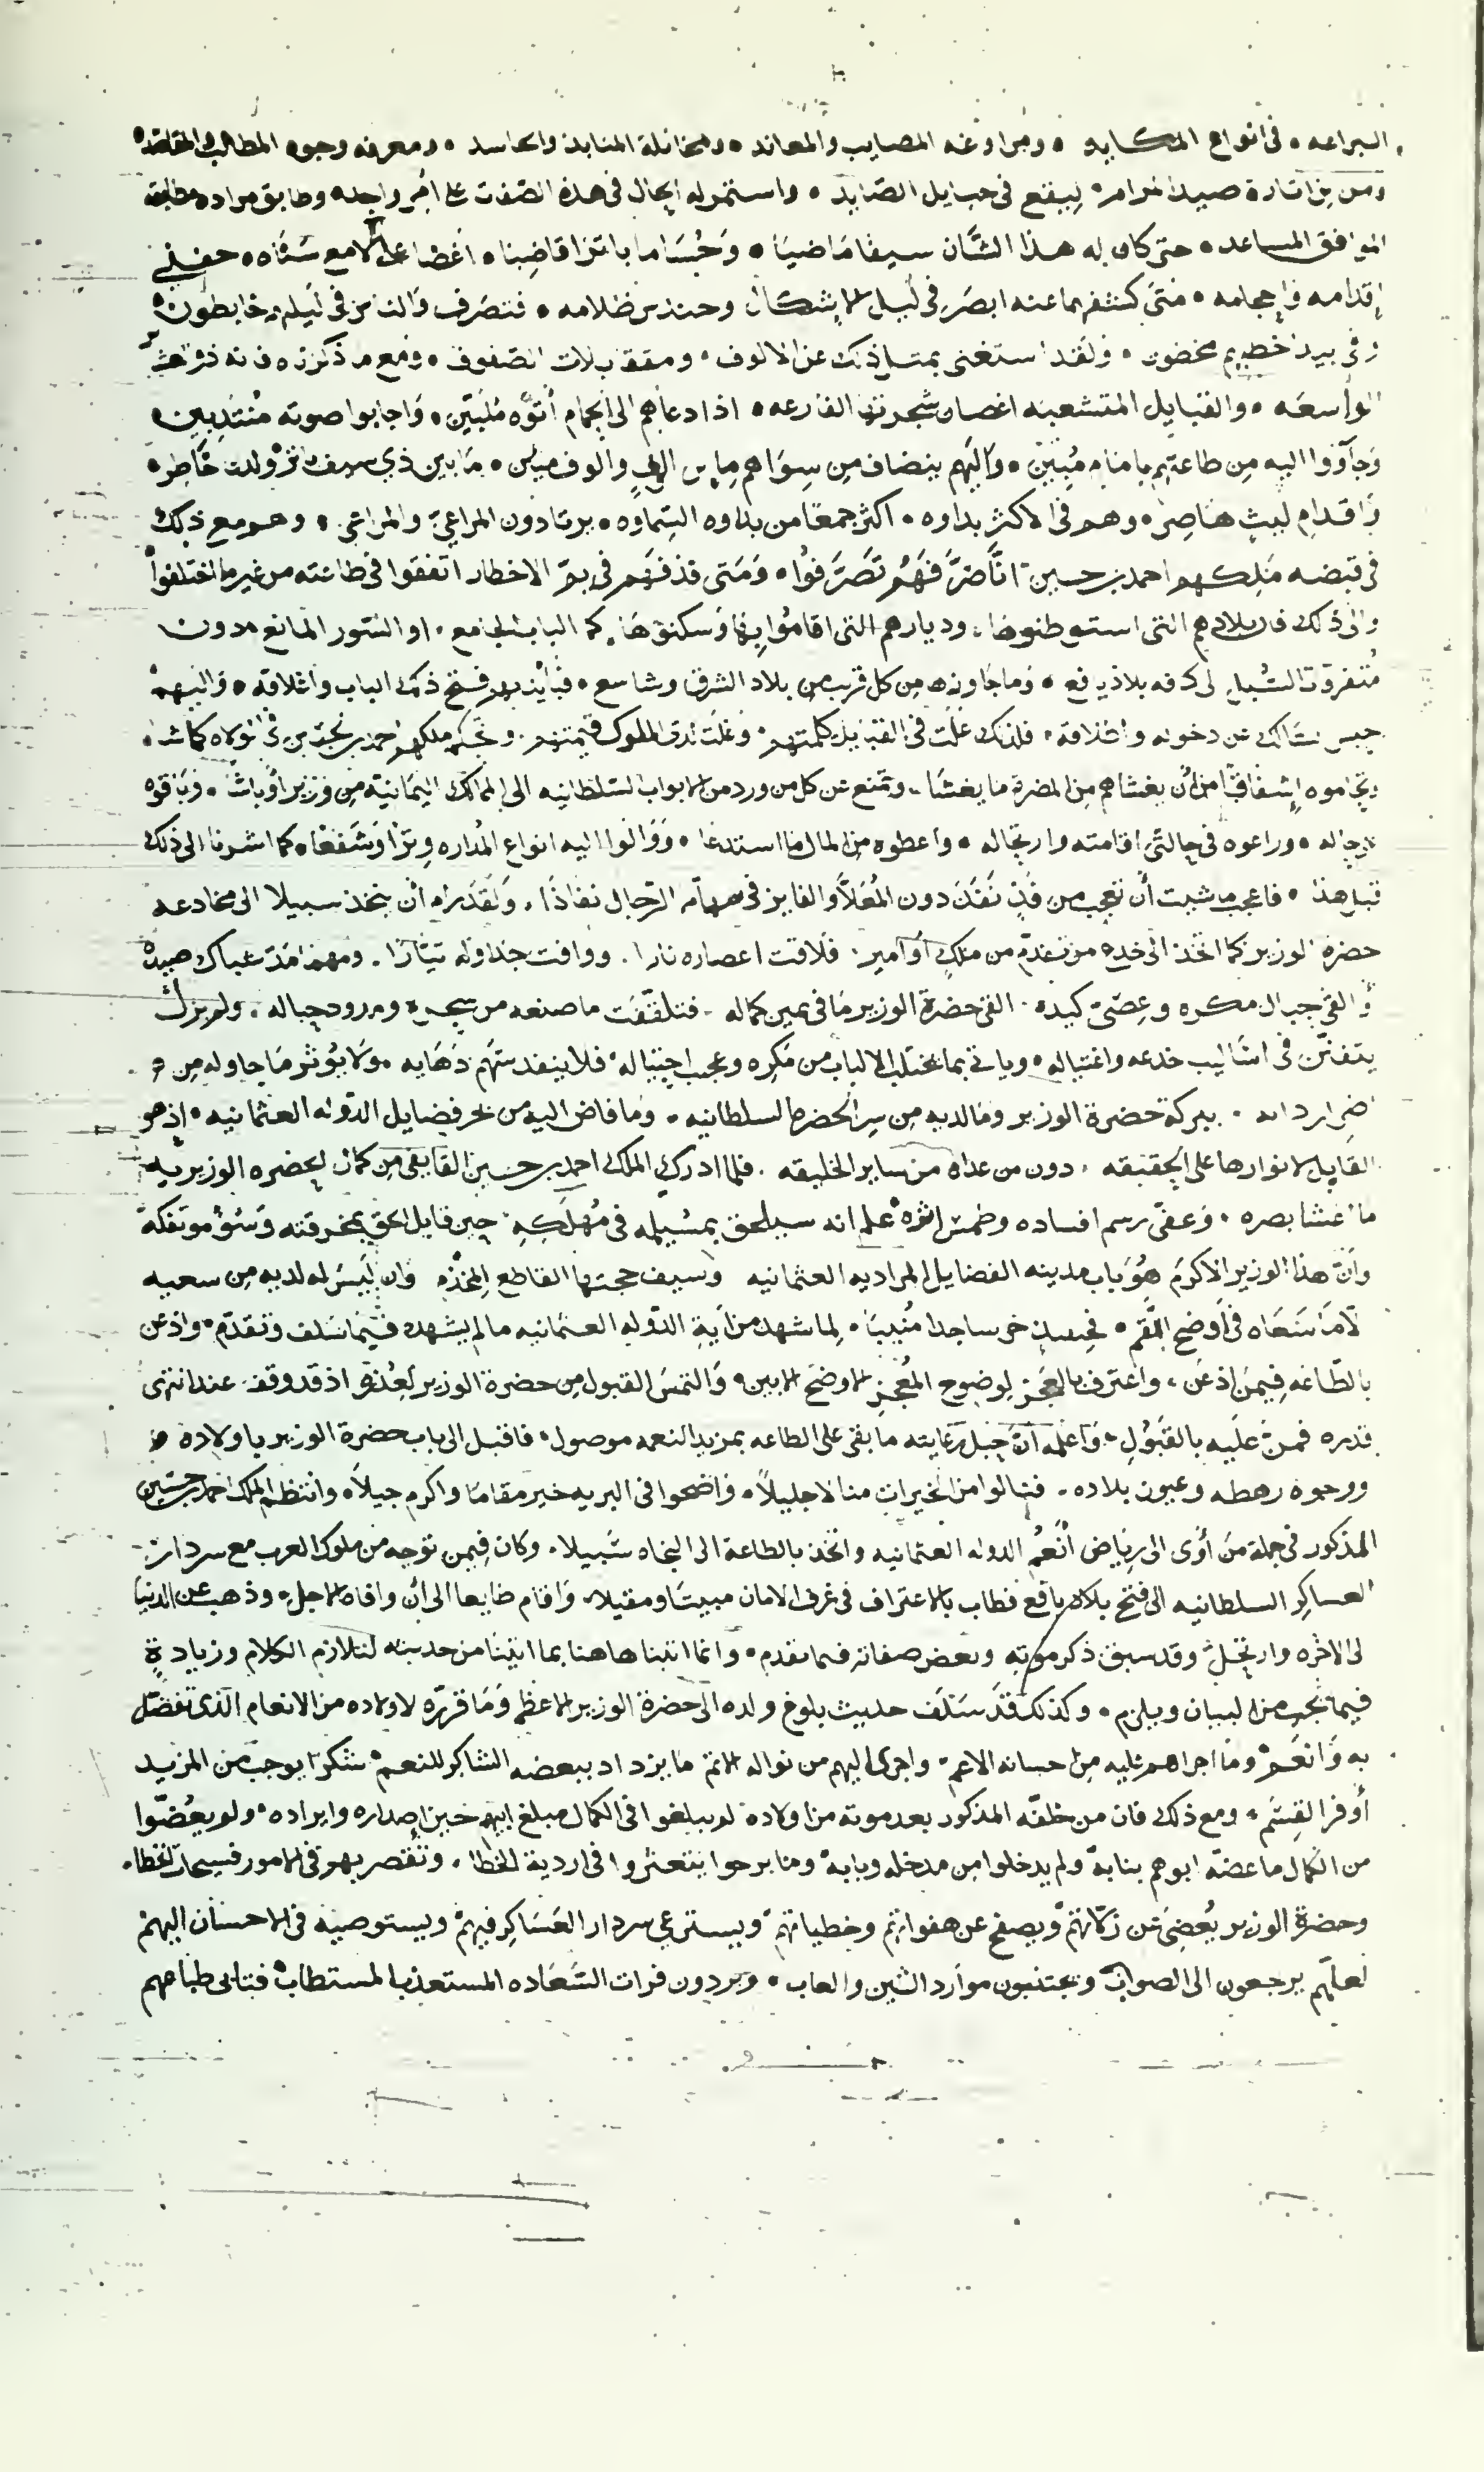 البراعه • فى انواع المكايده • ومراوغه المصايب والمعاند • ومخاتلة المنابذ والحاسد • ومعرفه وجوه المطالب والمقاصد
ومن اثارة صيد المرام • ليقع فى حبايل الصايد • واستمر له الحال فى هذه الصفات على امر واحد • وطابق مراده مطابقة
الموافق المساعد • حتى كان له هذا الشان سيفا مَاضيا • وَحُسَاما باترا قاضِبا •
إقدامه وَاحجامه • فمتى كشفر بما عنه ابصَر فى ليل الاشكال وحندس ظلامه • فتصَرف وَالناس فى ليلهم خابطون
وفى بيد خطبهم يخضون • ولقد استغنى بمثل ذلك عن الالوف • ومقابلات الصفوف • ومع ما ذكرناه فانه ذو
الواسعَه • والقبايل المتشعبه اغصان شجرتها الفارعه • اذا دعاهم الى الحمام أتوْه مُلبّين • وَاجابوا صوته مُنتدِبين
وَجآؤوا اليه مِن طاعتهم بامام مُبين • وَاليهم ينضاف مِن سِوَاهم مايين الفٍ والوف ميئن • مَا بين ذي سيف باتر • ولدن خَاطِر •
وَاقدامِ ليثٍ هَاصِر • وهم فى الاكثر بداوه • اكثر جمعًا من بداوه السَماوه • يرتادون المراعيَ والمراعي • وهم مع ذلك
فى قبضه مَلِكهم احمد بن حسين انّا صَرَّفَهُم تَصَرَّفوُا • وَمَتى قذفهَم فى يمّ الاخطار اتفقوا فى طاعته من غير ما اختلفوا
والى ذلك فان بلادهم التى استوطنوها • وديارهم التى اقامُوا بها وَسكنوهَا • كما الباب الجامع • او السّور المانع • دون
مُتفرقات السُبل الى كافه بلاد يافع • وَما جاوزه من كل قريب من بلاد الشرق وشاسع • فبأيديهم فتح ذلك الباب واغلاقه • وَاليهم
حبس السَالك عن دخوله واطلاقه • فلذلك عَلَت فى القبايل كلمتهم • وَغلت لدى الملوك قيمتهم • وتحكم ملكهم احمد بن حسين فى الولاه كما شا •
وتحاموه إشفاقًا من أن يغشاهم من المضرة ما يغشا • وتمنع عن كل من ورد من الابواب السّلطانيه الى الممالك اليمانية مِن وزير أو باشا •
رجاله • وراعوه فى حالتَي اقامته وارتحاله • واعطوه من المال مَا استدعا • وَوَالوا اليه انواع المُداره وِترًا وَشَفعًا • كما اشرنا الى ذلك
قبل هذا • فاعجب ما شيت أن تعجب من فذٍ نَفَذ دون المُعَلّا والفايز فى سهام الرّجال نفاذًا • وَلقد رام أن يتخذ سبيلا الى مخادعه
حضرة الوزير كما اتخذ الى خدع من تقدّم من ملكٍ أوَ اميرٍ • فلاقت اعصاره نارا • ووافت جداوله تيّارًا • ومهما مَدّ شباك صيده
وَالقى حبال مكره وعِصىّ كيده • القى حضرة الوزير مَا فى يمين كماله • فتلقّفَت ما صنعه من سحره ومدود حباله • ولم يزل
يتفنّن فى اسَاليب خدعه واغتياله • وياتي بما يختلب الالباب من مَكرِه وعجيب احتياله • فلا ينفد سَهَم دَهَايه • ولا يؤثر مَا حاوله مِن
اضرارِ دايه • ببركة حضرة الوزير ومَا لديه مِن سِر الحضره السلطانيه • وَما فاض اليه من بحر فضايل الدّوله العثمانيه • إذ هو
القابل لانوارها على الحقيقه • دون من عداه من ساير الخليقه • فلما ادرك الملك احمد بن حسين الفايق مِن كمال الحضره الوزيريه
ما اعشا بصره • وَعفىّ رسم افساده وطمسَ اثره • علم انه سيلحق بمسَيلمه فى مُهلكِهِ • حين قابل الحق بمخرقته وَسُوْ موتفكه
وَانّ هذا الوزير الاكرَم هُوَ باب مدينه الفضايل المراديه العثمانيه وسيف حجتها القاطع المِخذَم وَان ليسَ له لديه مِن سعيه
الّا مَا سَعَاه فى أوضح اللّقَم • فحِينيذٍ خرّ ساجدا مُنيبًا • لِما شهد من آيةِ الدّوله العثمانيه ما لم يشهده فيما سَلف وتقدّم • واذعن
بالطّاعه فِيمن اذعَن • واعتَرف بالعَجزِ لوضوح المُعجِزِ الاوضحَ الابين • وَالتمسَ القبول مِن حضرة الوزير لعُذره اذ قد وقف عند انتهى
قدره فمنّ علَيه بالقَبُولِ • وَاعلمه أنّ حبل رعايته ما بقى على الطاعه بمزيد النعمه موصول • فاقبل الى باب حضرة الوزير باولاده
ووجوه رهطه وعيون بلاده • فنالوا من الخيرات منالا جليلاً • واضحوا فى البريه خيرَ مقامًا واكرم جيلاً • وانتظم الملك احمد بن حسَين
المذكور فى جملة مَن أوَى الى رِياض أنعُمِ الدوله العثمانيه واتخذ بالطاعة الى النجاه سَبيلا • وكان فِيمن توجه من ملوك العرب مع سردار
العساكِر السلطانيه الى فتح بلاد يافع فطاب بالاعتراف فى غرف الامان مبيتًا ومقيلا • وَاقام طايعا الى ان وافاه الاجل • وذهب عن الدنيا
الى الاخره وارتحل • وقد سبق ذكر موته وبعض صفاته فيما تقدم • وانما اتينا هاهنا بما اتيْنا من حديثه لتلازم الكلام وزيادةٍ
فيما يجب من البيان ويلزم • وكذلك قَد سَلَف حديث بلوغ ولده الى حضرة الوزير الاعظم وَمَا قرره لاولاده من الانعام الذى تفضّل
به وَانعَم • ومَا اجراهم عليه مِن احسانه الاعم • واجرى اليهم من نواله الاتم ما يزداد ببعضه الشاكر للنعم • شكرًا يوجب من المزيد
أوفر القِسَم • ومع ذلك فان من خلفه المذكور بعد موته من اولاده لم يبلغوا فى الكمال مبلغ ابيهم حين إصداره وايراده • ولم يعُضّوا
من الكمال ما عضه ابوهم بنابه • ولم يدخلوا مِن مدخله وبابه • وما برحوا يتعثروا فى اردية الخطا • وتقصر بهم فى الامور فسيحات الخطا •
وحضرة الوزير يُغضِى عَن زلّاتهم • ويصفح عن هفواتهم وخطياتهم • ويسترعي سردار العَسَاكِر فيهمْ • ويستوصيه فى الاحسان اليهمْ
لعلّهم يرجعون الى الصواب • ويجتنبون موارد الشين والعاب • ويردون فرات السَعَاده المستعذب المستطاب • فتابى طباعهم